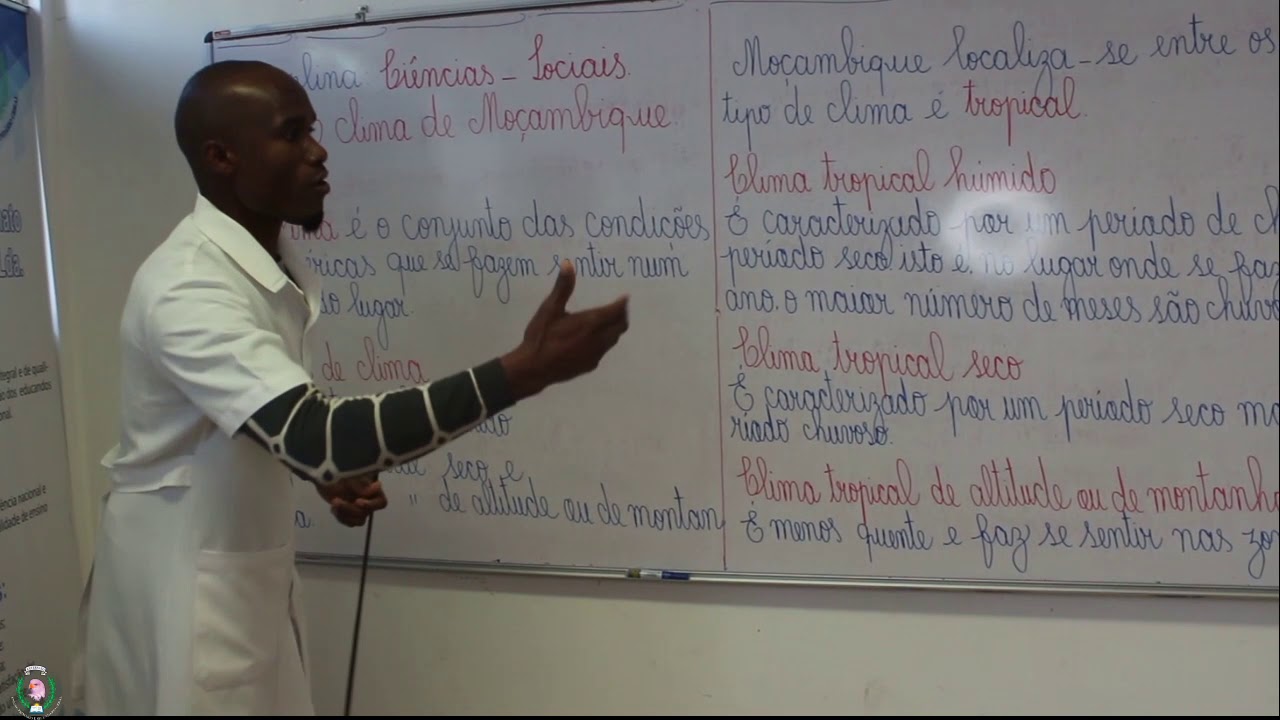 lina: Ciências - Sociais.
clima de Moçambique.
é o conjunto das condições
ricas que se fazem sentir num
lugar.
de clima
seco e
" de altitude ou de montan
a.
Moçambique localiza-se entre os
tipo de clima é tropical.
Clima tropical húmido
É caracterizado por um período de ch
período seco isto é, no lugar onde se faz
ano. o maior número de meses são chuvo
Clima tropical seco
É caracterizado por um período seco ma
ríodo chuvoso.
Clima tropical de altitude ou de montanha
É menos quente e faz se sentir nas zon
Lda.
tegral e de quali-
ão dos educandos
onal.
ência nacional e
lidade de ensino